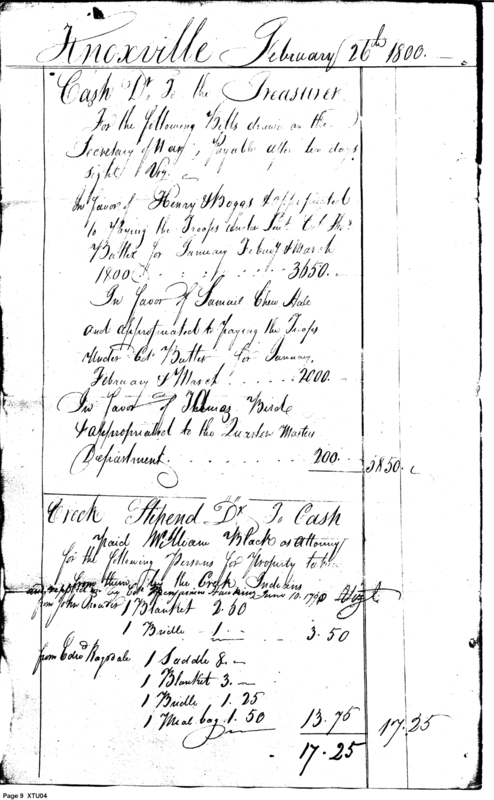 Knoxville February 26th 1800.
Cash Dr. To the Treasurer
For the following Bills drawn on the
Secretary of War, Payable after ten days
sight Vizt.
In favor of Henry & Boggs & appropriated
to Paying the Troops under Lieut. Col. Thos.
Butler for January Febuy & March
1800 3650.
In favor of Samuel Chew Hale
and appropriated to paying the Troops
Under Col. Butler for January,
February & March 2000.
In favor of Thomas
& appropriated to the Quarter Masters
Department. 200. 5850.
Creek Stipend Dr. To Cash
Paid William Black as attorney
for the following Persons for Property taken
from them by the Creek Indians
Benjamin Hawkins June 10. Vizt
from John 1 Blanket 2.50
1 Bridle 1 3.50
from Edwd Ragsdale 1 Saddle 8.
1 Blanket 3.
1 Bridle 1.25
1 Meal bag 1.50 13.75 17.25
17.25
Page 9 XTU04